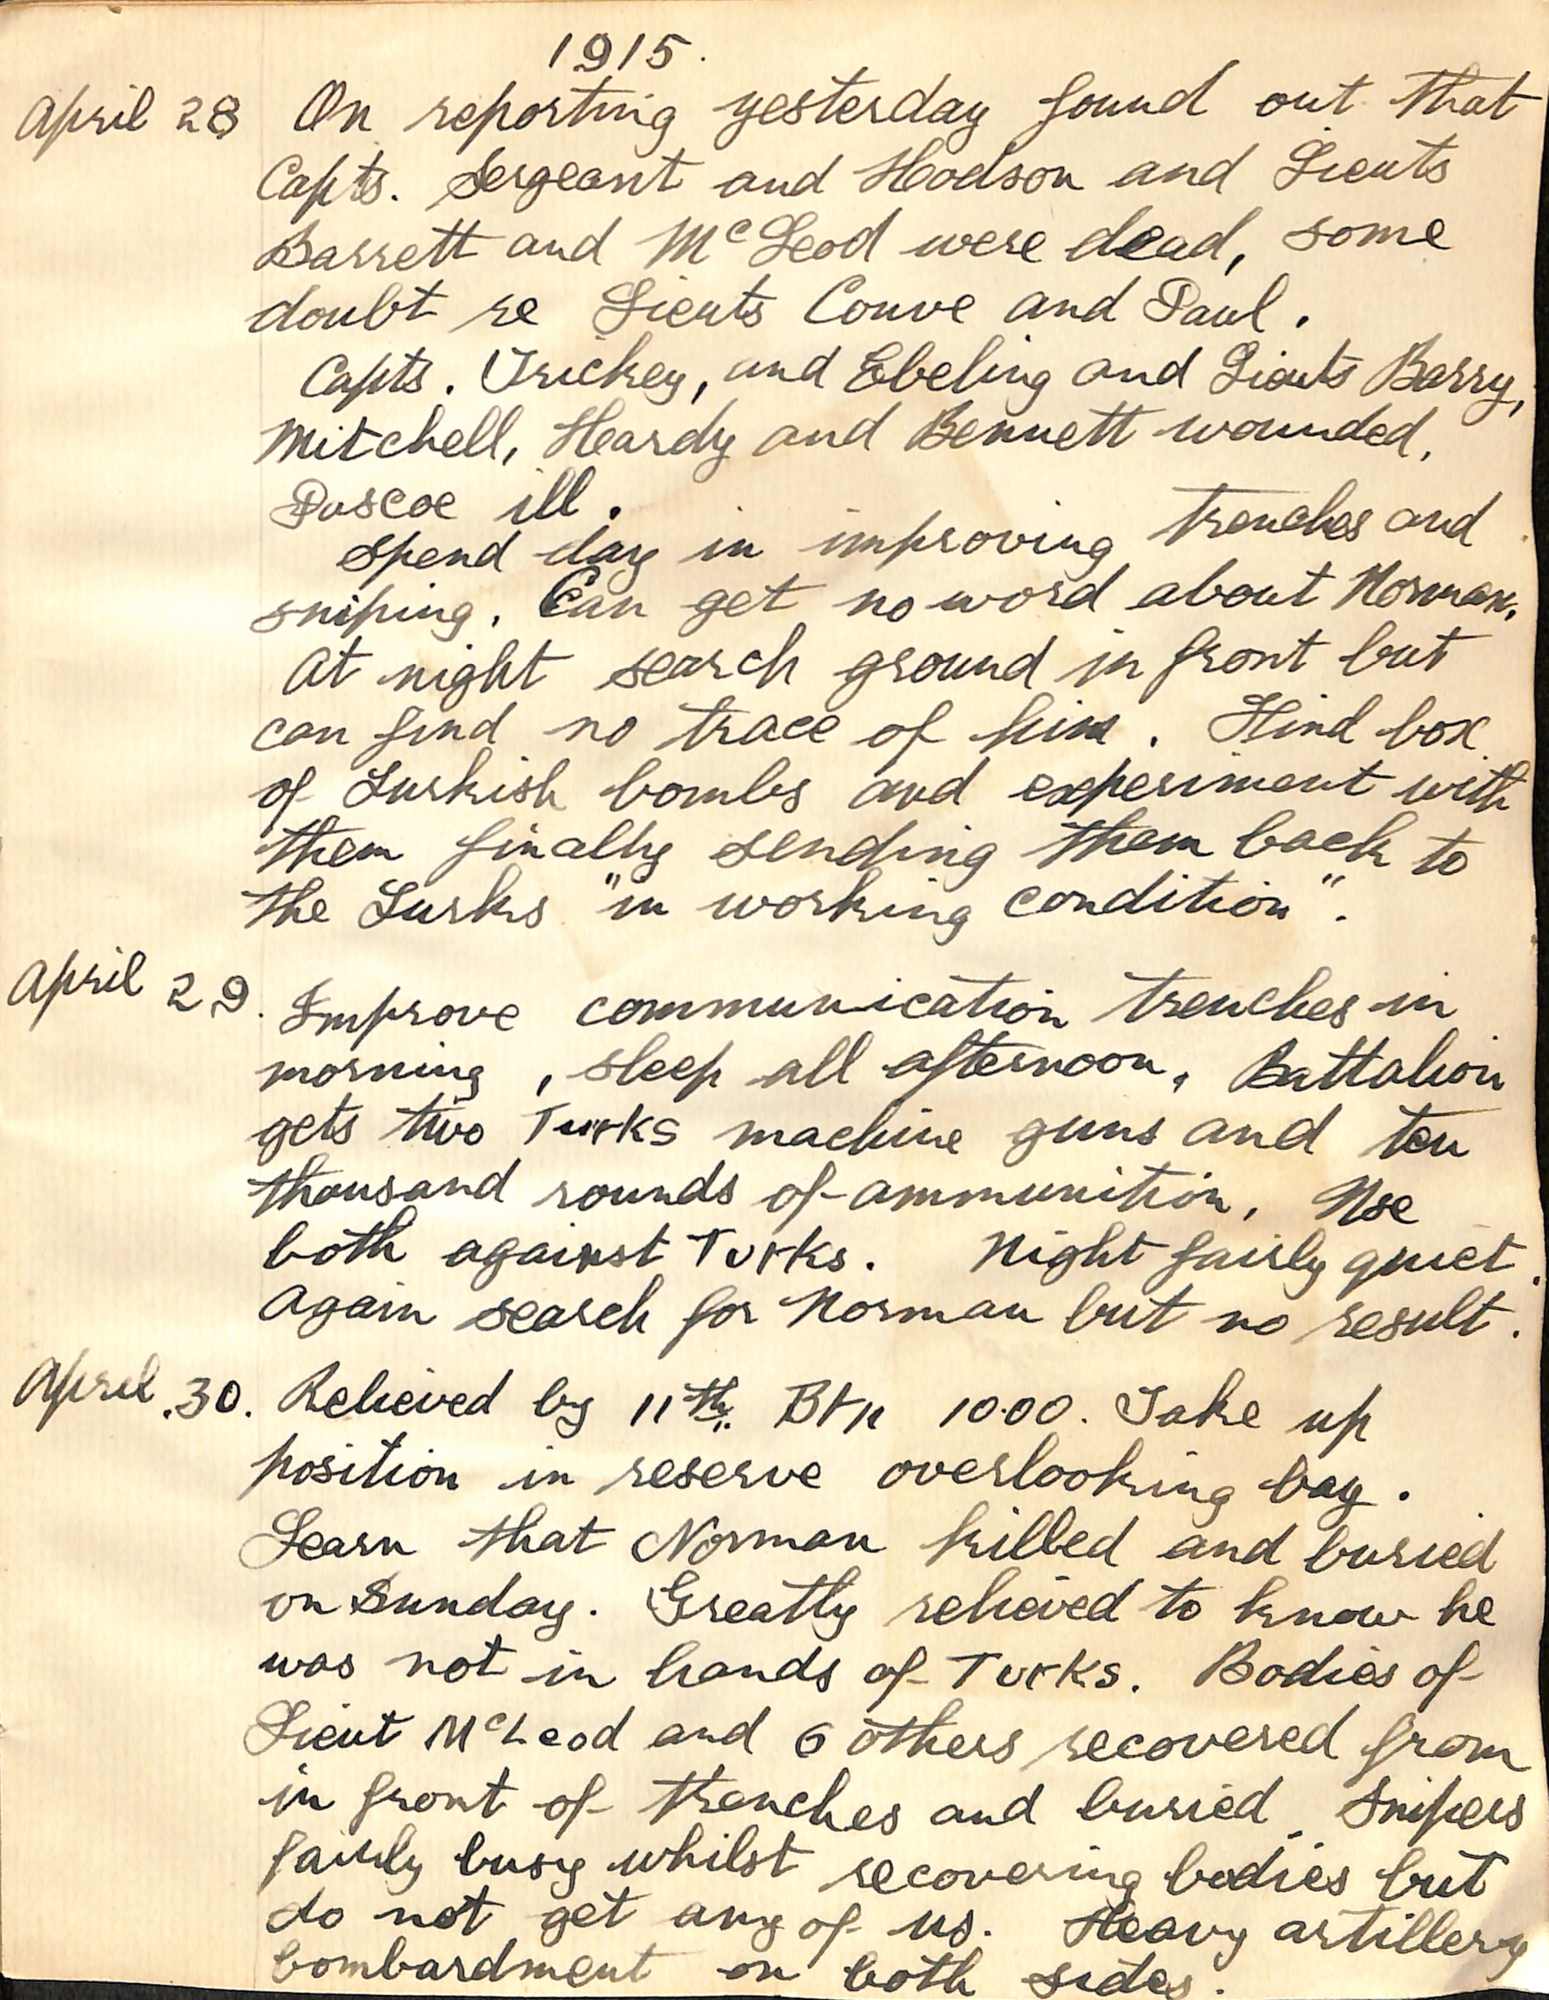 1915.
April 28 On reporting yesterday found out that
Capts. Sergeant and Hodson and Lieuts
Barrett and McLeod were dead, some
doubt re Lieuts Couve and Paul.
Capts. Trickey, and Ebeling and Lieuts Barry,
Mitchell, Hardy and Bennett wounded,
Pascoe ill.
Spend day in improving trenches and
sniping. Can get no word about Norman.
At night search ground in front but
can find no trace of him. Find box
of Turkish bombs and experiment with
them finally sending them back to
the Turks "in working condition".
April 29. Improve communication trenches in
morning, sleep all afternoon, Battalion
gets two Turks machine guns and ten
thousand rounds of ammunition, Use
both against Turks. Night fairly quiet.
Again search for Norman but no result.
April .30. Relieved by 11th. Btn 1000. Take up
position in reserve overlooking bay.
Learn that Norman killed and buried
on Sunday. Greatly relieved to know he
was not in hands of Turks. Bodies of
Lieut McLeod and 6 others recovered from
in front of trenches and buried. Snipers
fairly busy whilst recovering bodies but
do not get any of us. Heavy artillery
bombardment on both sides.